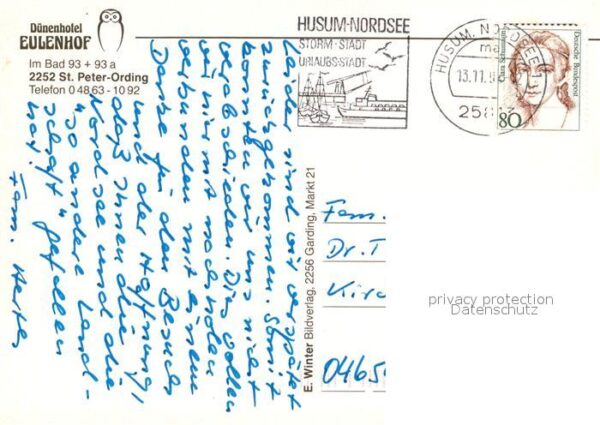 Dünenhotel
EULENHOF
Im Bad 93 + 93 a
2252 St. Peter-Ording
Telefon 0 48 63 - 10 92
HUSUM-NORDSEE
STORM-STADT
URLAUBSSTADT
HUSUM, NORDSEE 1
ma
13.11.
258
Clara Schumann
Deutsche Bundespost
80
Leider sind wir verspätet
zurückgekommen. Somit
konnten wir uns nicht
verabschieden. Dies wollen
wir hiermit nachholen
verbunden mit einem
Danke für den Besuch
und der Hoffnung,
daß Ihnen die
Nordsee und die
"so andere Land-
schaft" gefallen
hat.
Fam.
E. Winter Bildverlag, 2256 Garding, Markt 21
Fam.
Dr. T
Kirc
0465
privacy protection
Datenschutz